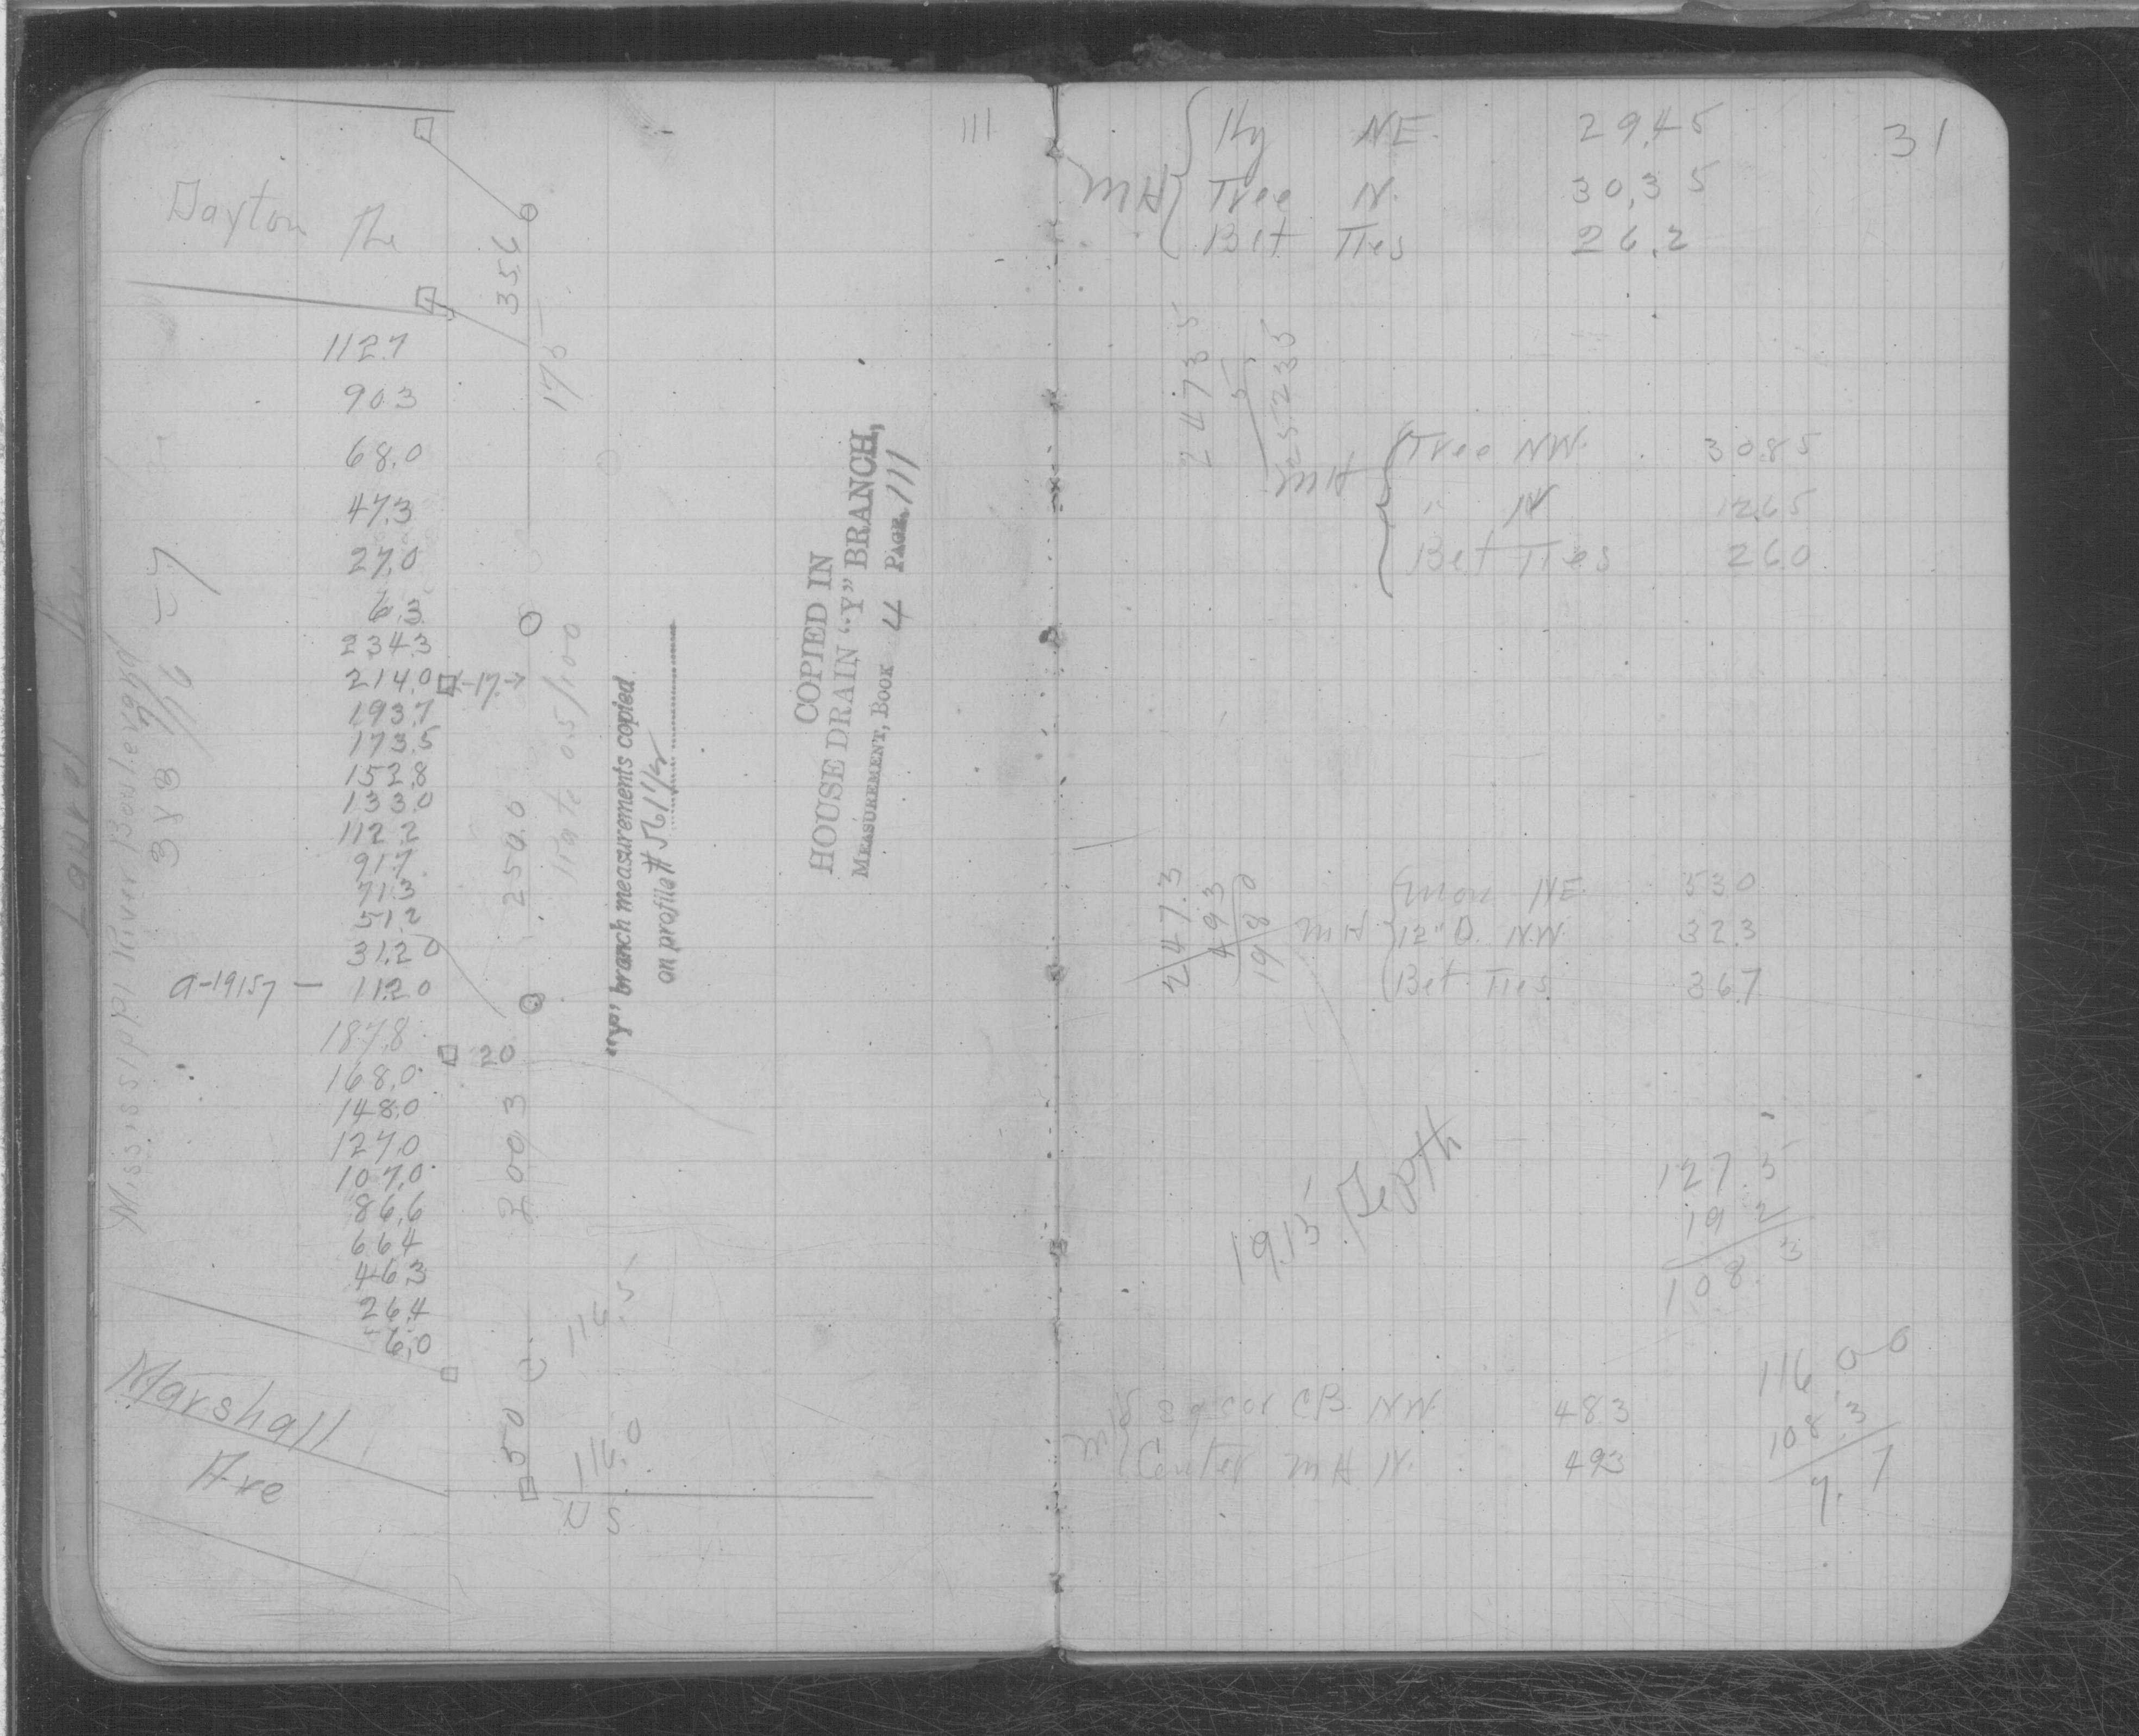 111
Dayton Ave
35.6
175
112.7
90.3
68.0
47.3
27.0
6.3
234.3
214.0 -17-
193.7
173.5
152.8
133.0
112.2
91.7
71.3
51.2
31.20
a-19157 — 11.20
187.8
20
168.0
148.0
127.0
107.0
86.6
66.4
46.3
26.4
6.0
Marshall
Ave
Mississippi River Boulevard
Laurel
250.0
200.3
50
116.5
116.0
"Y" branch measurements copied
on profile #
COPIED IN
HOUSE DRAIN "Y" BRANCH,
MEASUREMENT, BOOK 4 PAGE 111
31
Hy NE. 29.45
MH Tree N. 30.35
Bet Ties 26.2
247.35
5
252.35
Tree NW. 30.85
MH " N 12.65
Bet Ties 26.0
247.3
49.3
198.0
mon NE 53.0
MH 12" O. N.W. 32.3
Bet Ties 36.7
19.15' Depth
127.5
19.2
108.3
116.00
108.3
7.7
cor CB. NW. 48.3
Center MH N. 49.3